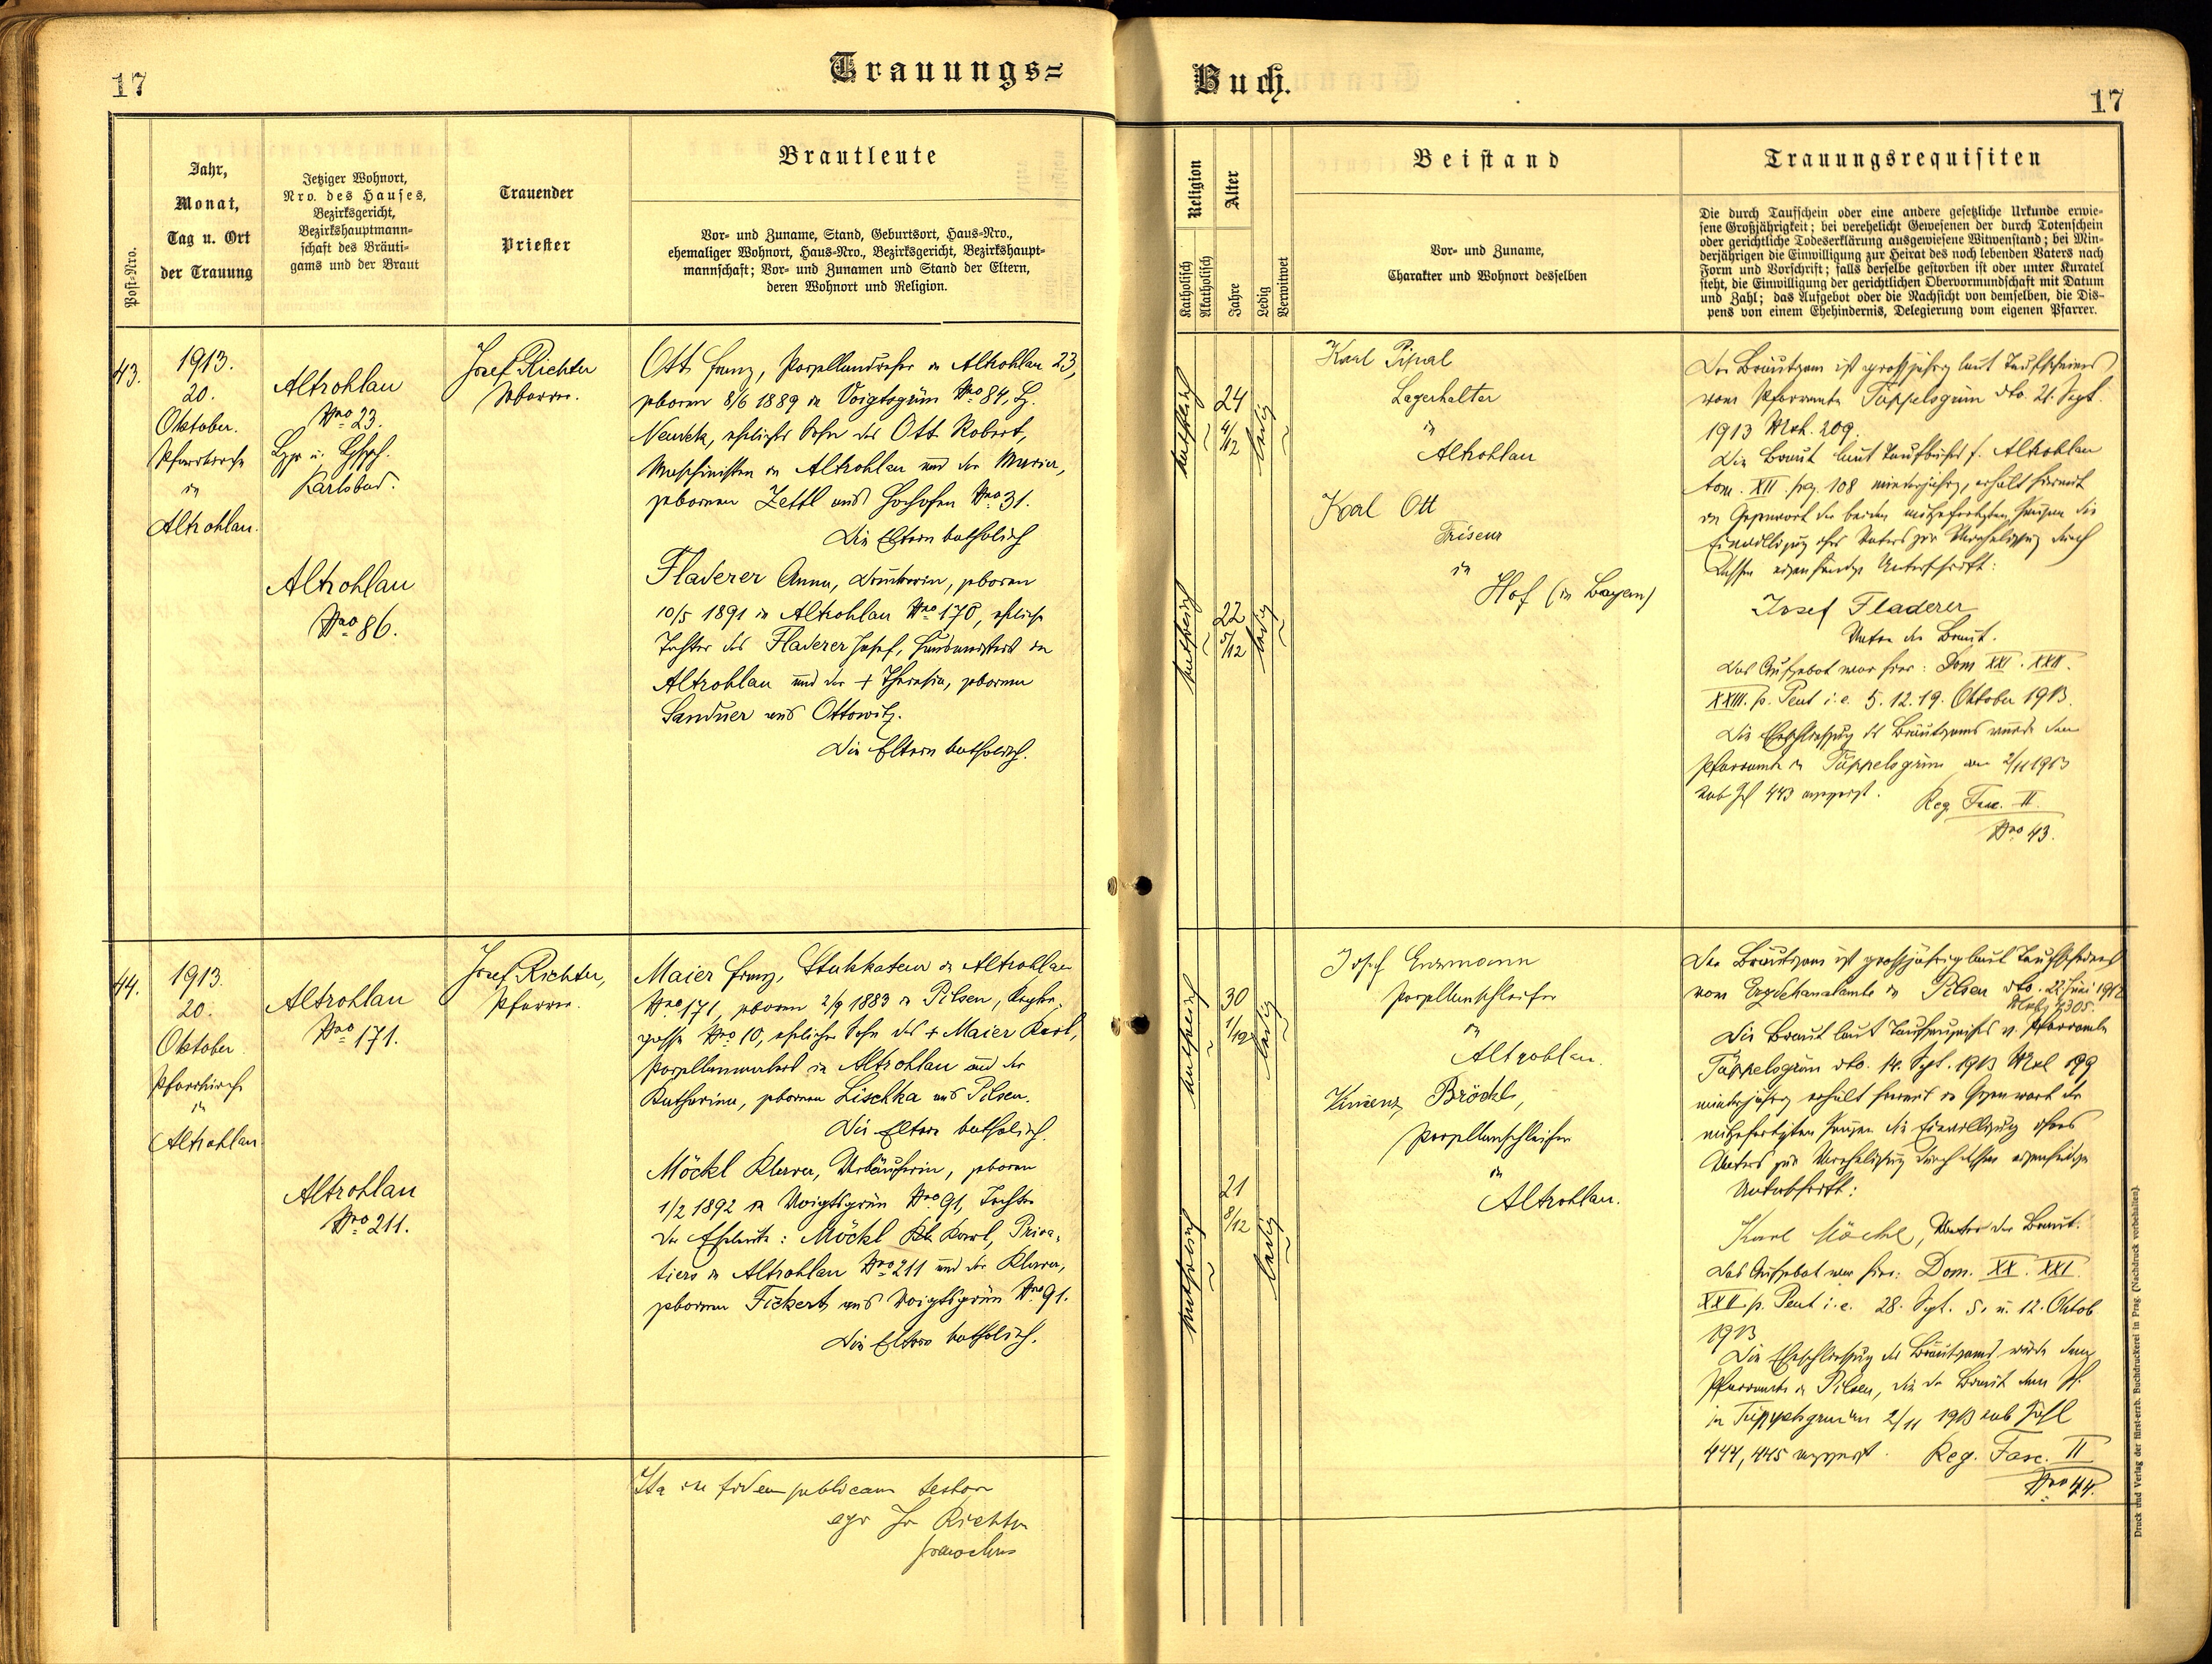 17
Trauungs=
Post-Nro.
Jahr,
Monat,
Tag u. Ort
der Trauung
Jetziger Wohnort,
Nro. des Hauses,
Bezirksgericht,
Bezirkshauptmann-
schaft des Bräuti-
gams und der Braut
Trauender
Priester
Brautleute
Vor- und Zuname, Stand, Geburtsort, Haus-Nro.,
ehemaliger Wohnort, Haus-Nro., Bezirksgericht, Bezirkshaupt-
mannschaft; Vor- und Zunamen und Stand der Eltern,
deren Wohnort und Religion.
43.
1913.
20.
Oktober.
Pfarrkirche
in
Altrohlau.
Altrohlau
Nro 23.
Karlsbad.
Altrohlau
Nro 86.
Josef Richter
Pfarrer.
Ott Franz, Porzellandreher in Altrohlau 23,
geboren 8/6 1889 in Voigtsgrün Nro 84, Bz.
Neudek, ehelicher Sohn des Ott Robert,
Maschinisten in Altrohlau und der Maria,
geborenen Zettl aus Hochofen Nro 31.
Die Eltern katholisch
Fladerer Anna, Druckerin, geboren
10/5 1891 in Altrohlau Nro 170, eheliche
Tochter des Fladerer Josef, in
Altrohlau und der + Theresia, geborenen
Sandner aus Ottowitz.
Die Eltern katholisch.
44.
1913.
20.
Oktober
Pfarrkirche
in
Altrohlau
Altrohlau
Nro 171.
Altrohlau
Nro 211.
Josef Richter,
Pfarrer.
Maier Franz, Stukkateur in Altrohlau
Nro 171, geboren 2/9 1883 in Pilsen,
gasse Nro 10, ehelicher Sohn des + Maier Karl,
in Altrohlau und der
Katharina, geborenen Lischka aus Pilsen.
Die Eltern katholisch.
Möckl Klara, Verkäuferin, geboren
1/2 1892 in Voigtsgrün Nro 91, Tochter
der Eheleute: Möckl Karl, Priva-
tiers in Altrohlau Nro 211 und der Klara,
geborenen Fickert aus Voigtsgrün Nro 91.
Die Eltern katholisch.
Ita in fidem publicam testor
ego Jos Richter
parochus
Buch.
17
Religion
Katholisch
Akatholisch
Alter
Jahre
Ledig
Verwitwet
Beistand
Vor- und Zuname,
Charakter und Wohnort desselben
Trauungsrequisiten
Die durch Taufschein oder eine andere gesetzliche Urkunde erwie-
sene Großjährigkeit; bei verehelicht Gewesenen der durch Totenschein
oder gerichtliche Todeserklärung ausgewiesene Witwenstand; bei Min-
derjährigen die Einwilligung zur Heirat des noch lebenden Vaters nach
Form und Vorschrift; falls derselbe gestorben ist oder unter Kuratel
steht, die Einwilligung der gerichtlichen Obervormundschaft mit Datum
und Zahl; das Aufgebot oder die Nachsicht von demselben, die Dis-
pens von einem Ehehindernis, Delegierung vom eigenen Pfarrer.
katholisch
24
4/12
ledig
katholisch
22
5/12
ledig
Karl Pipal
Lagerhalter
in
Altrohlau
Karl Ott
Friseur
in
Hof (in Bayern)
Der Bräutigam ist großjährig laut Taufscheines
vom Pfarramte Tüppelsgrün dto. 21. Sept.
1913 Mrk. 209.
Die Braut laut Taufbuches f. Altrohlau
tom. XII pag. 108 minderjährig, erhält hiermit
in Gegenwart der beiden mitgefertigten Zeugen die
Einwilligung ihres Vaters zur Verehelichung durch
dessen eigenhändige Unterschrift:
Josef Fladerer
Vater der Braut.
Das Aufgebot war hier: Dom XXI. XXII.
XXIII. p. Pent i. e. 5. 12. 19. Oktober 1913.
Die Eheschließung des Bräutigams wurde dem
Pfarramte in Tüppelsgrün am 2/11 1913
sub Zhl 443 angezeigt. Reg. Fasc. II
Nro 43.
katholisch
30
1/12
ledig
katholisch
21
8/12
ledig
Josef
Porzellanschleifer
in
Altrohlau.
Vinzenz Bröckl,
Porzellanschleifer
in
Altrohlau.
Der Bräutigam ist großjährig laut Taufscheines
vom Erzdekanatamte in Pilsen dto. 22 Juni 1912
4305.
Die Braut laut Taufzeugnisses v. Pfarramte
Tüppelsgrün dto. 14. Sept. 1913 Mrk 199
minderjährig erhält hiermit in Gegenwart der
mitgefertigten Zeugen die Einwilligung ihres
Vaters zur Verehelichung durch dessen eigenhändige
Unterschrift:
Karl Möckl, Vater der Braut.
Das Aufgebot war hier: Dom. XX. XXI.
XXII. p. Pent i. e. 28. Sept. 5. u. 12. Oktob
1913
Die Eheschließung des Bräutigams wurde dem
Pfarramte in Pilsen, die der Braut dem Pf.
in Tüppelsgrün 2/11 1913 sub Zahl
444, 445 angezeigt. Reg. Fasc. II
Nro 44.
Druck und Verlag der fürst-erzb. Buchdruckerei in Prag. (Nachdruck vorbehalten).